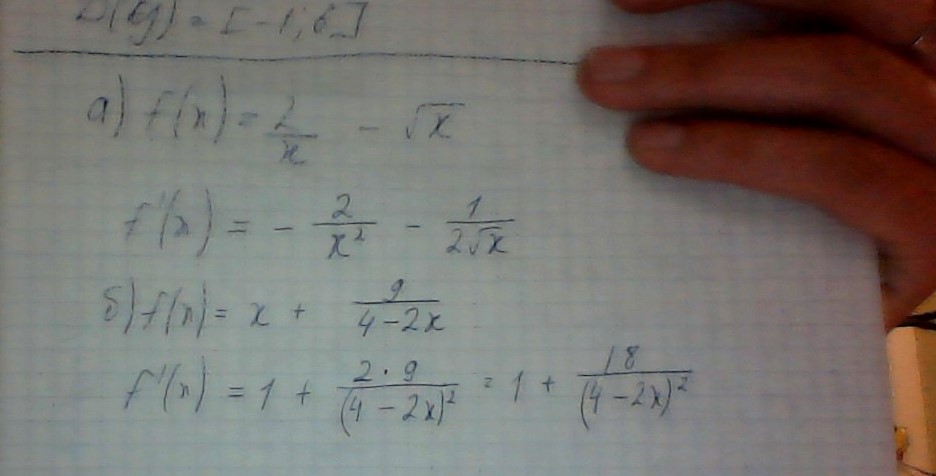 D(y) = [-1; 6]
а) f(x) = 2/x - √x
f'(x) = - 2/x² - 1/(2√x)
б) f(x) = x + 9/(4-2x)
f'(x) = 1 + (2·9)/(4-2x)² = 1 + 18/(4-2x)²